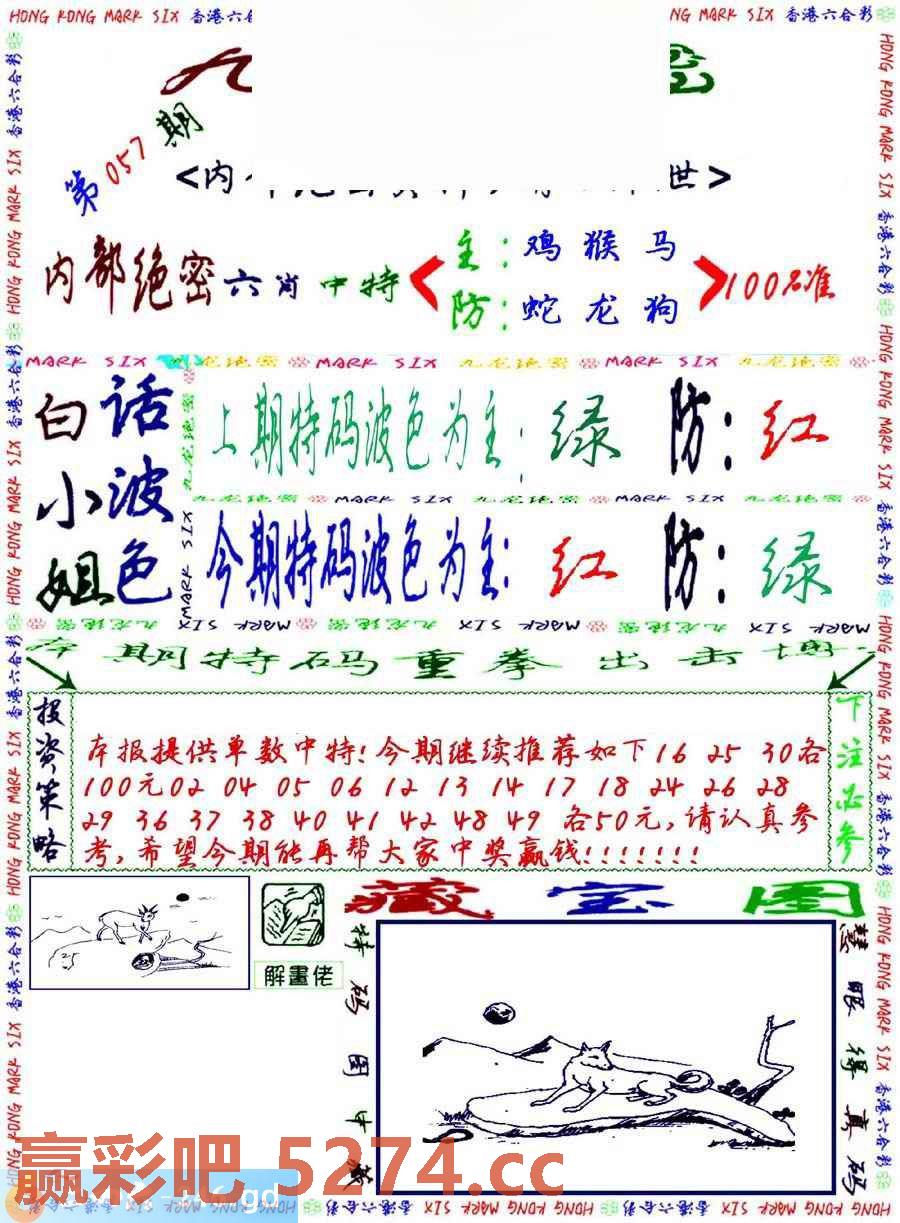 HONG KONG MARK SIX 香港六合彩
NG MARK SIX 香港六合彩
九
密
第057期
<内
世>
内部绝密六肖中特
主:鸡猴马
防:蛇龙狗
100名准
MARK SIX 九龙绝密 MARK SIX 九龙绝密 MARK SIX 九龙绝密
白话
小波
姐色
上期特码波色为主:绿 防:红
九龙绝密 MARK SIX 九龙绝密 MARK SIX 九龙绝密
今期特码波色为主:红 防:绿
九龙绝密 MARK SIX 九龙绝密 MARK SIX 九龙绝密 MARK SIX
本期特码重拳出击
投资策略
本报提供单数中特!今期继续推荐如下16 25 30各
100元02 04 05 06 12 13 14 17 18 24 26 28
29 36 37 38 40 41 42 48 49 各50元,请认真参
考,希望今期能再帮大家中奖赢钱!!!!!!!
下注必参
藏宝图
解畫佬
特码图中藏
慧眼得真码
赢彩吧 5274.cc
HONG KONG MARK SIX 香港六合彩